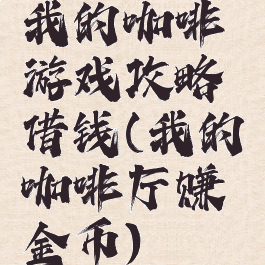 我的咖啡
游戏攻略
借钱(我的
咖啡厅赚
金币)